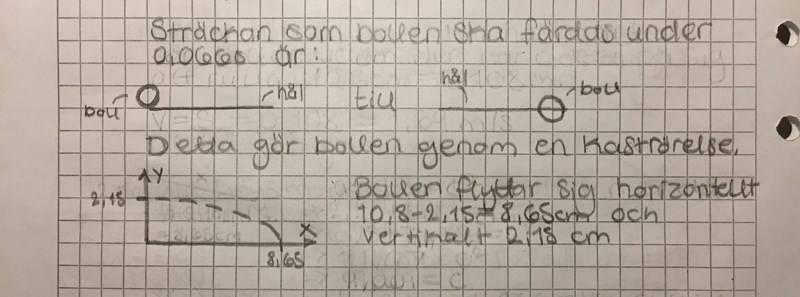 Sträckan som bollen ska färdas under
0,066s är:
boll hål till hål boll
Detta gör bollen genom en kaströrelse.
Y Bollen flyttar sig horizontellt
2,15 10,8-2,15=8,65cm och
X vertikalt 2,15 cm
8,65